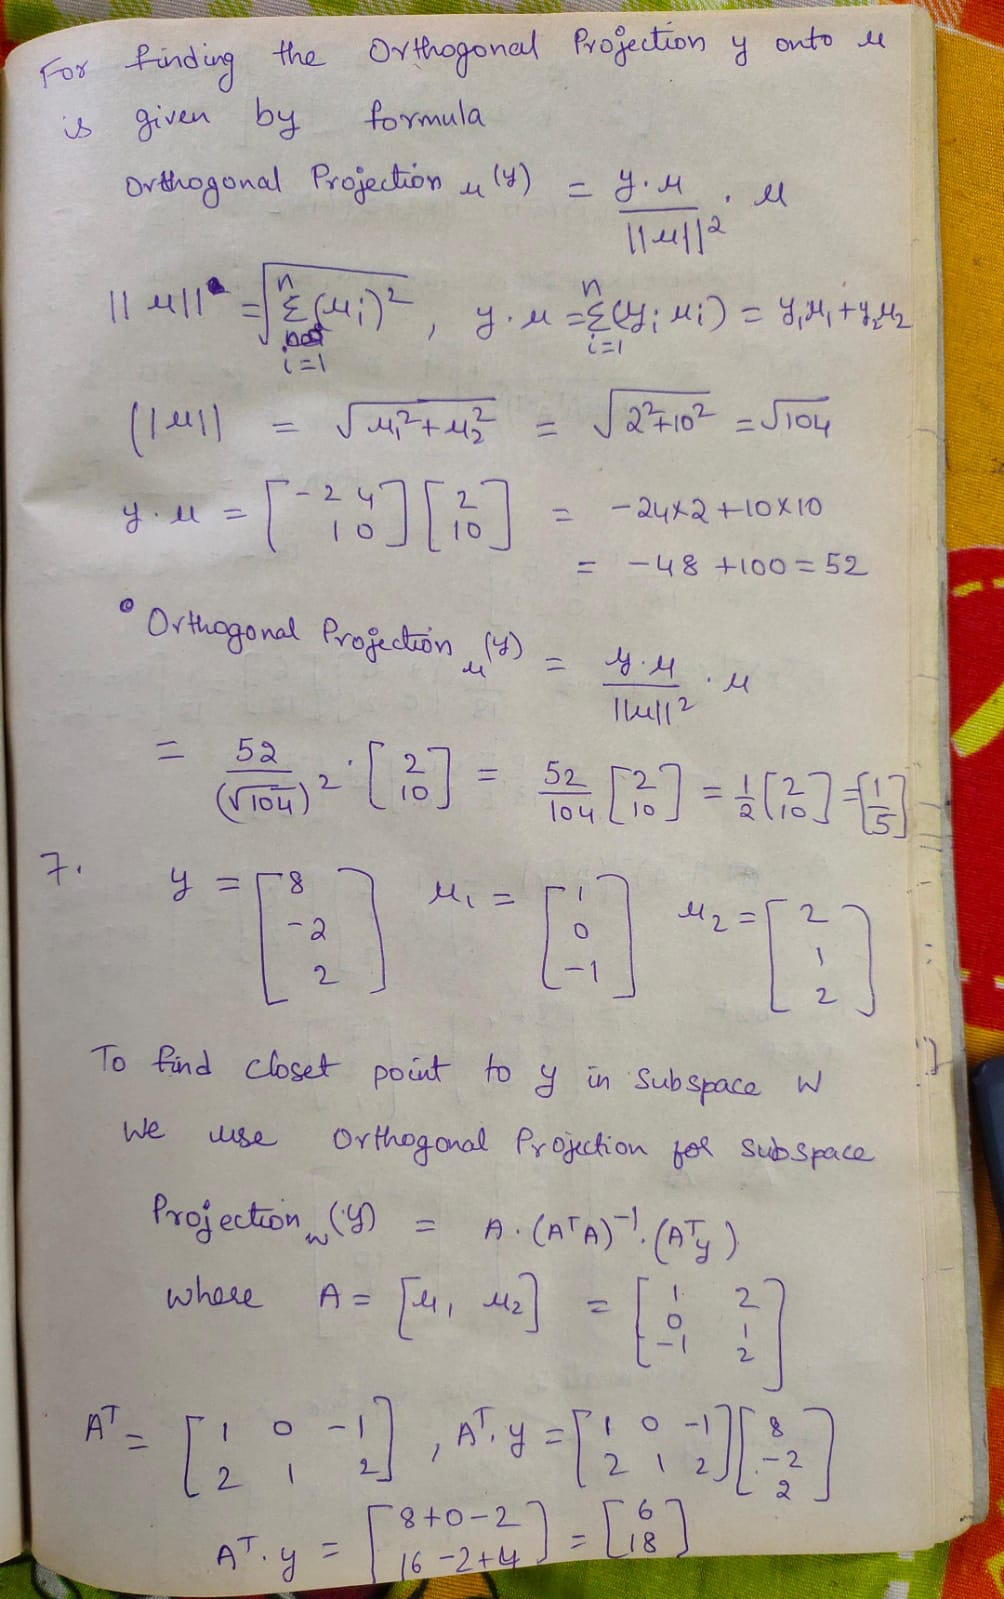 For finding the Orthogonal Projection y onto u
is given by formula
Orthogonal Projection u (y) = y.u / ||u||² . u
||u|| = √(Σ_{i=1}^{n} (ui)²) , y.u = Σ_{i=1}^{n} (yi ui) = y1u1 + y2u2
||u|| = √(u1² + u2²) = √(2²+10²) = √104
y.u = [-24 10] [2 10] = -24x2 +10x10
= -48 +100 = 52
Orthogonal Projection u (y) = y.u / ||u||² . u
= 52 / (√104)² . [2 10] = 52/104 [2 10] = 1/2 [2 10] = [1 5]
7. y = [8 -2 2] u1 = [1 0 -1] u2 = [2 1 2]
To find closet point to y in Subspace W
We use Orthogonal Projection for subspace
Projection w (y) = A.(AᵀA)⁻¹.(Aᵀy)
where A = [u1 u2] = [1 2 0 1 -1 2]
Aᵀ = [1 0 -1 2 1 2] , Aᵀ.y = [1 0 -1 2 1 2] [8 -2 2]
Aᵀ.y = [8+0-2 16-2+4] = [6 18]